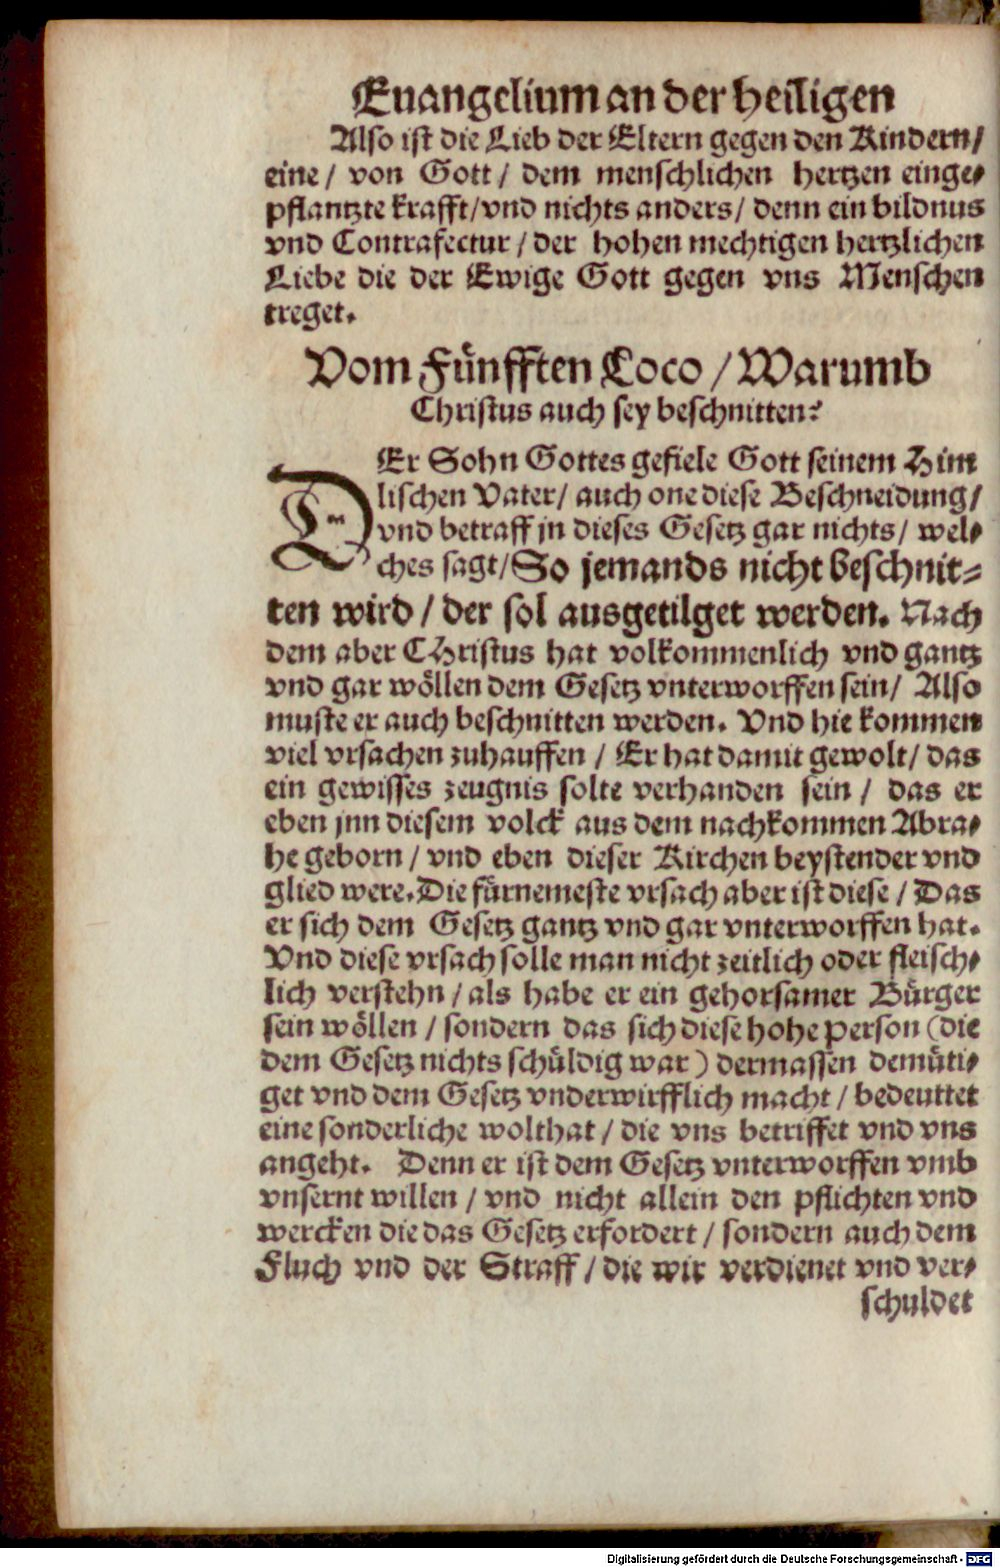 Euangelium an der heiligen
Also ist die Lieb der Eltern gegen den Kindern/
eine / von Gott / dem menschlichen hertzen einge-
pflantzte krafft/vnd nichts anders/ denn ein bildnus
vnd Contrafectur / der hohen mechtigen hertzlichen
Liebe die der Ewige Gott gegen vns Menschen
treget.
Vom Fünfften Loco / Warumb
Christus auch sey beschnitten?
DEr Sohn Gottes gefiele Gott seinem Him
lischen Vater/ auch one diese Beschneidung/
vnd betraff jn dieses Gesetz gar nichts/ wel-
ches sagt/So jemands nicht beschnit-
ten wird / der sol ausgetilget werden. Nach
dem aber CHristus hat volkommenlich vnd gantz
vnd gar wöllen dem Gesetz vnterworffen sein/ Also
muste er auch beschnitten werden. Vnd hie kommen
viel vrsachen zuhauffen / Er hat damit gewolt/ das
ein gewisses zeugnis solte verhanden sein / das er
eben jnn diesem volck aus dem nachkommen Abra-
he geborn / vnd eben dieser Kirchen beystender vnd
glied were.Die fürnemeste vrsach aber ist diese / Das
er sich dem Gesetz gantz vnd gar vnterworffen hat.
Vnd diese vrsach solle man nicht zeitlich oder fleisch-
lich verstehn / als habe er ein gehorsamer Bürger
sein wöllen / sondern das sich diese hohe person (die
dem Gesetz nichts schüldig war) dermassen demüti-
get vnd dem Gesetz vnderwirfflich macht / bedeuttet
eine sonderliche wolthat / die vns betriffet vnd vns
angeht. Denn er ist dem Gesetz vnterworffen vmb
vnsernt willen / vnd nicht allein den pflichten vnd
wercken die das Gesetz erfordert / sondern auch dem
Fluch vnd der Straff / die wir verdienet vnd ver-
schuldet
Digitalisierung gefördert durch die Deutsche Forschungsgemeinschaft - DFG